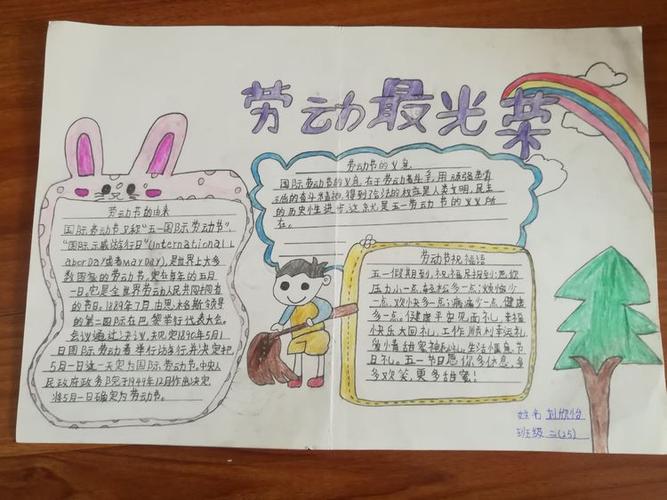 劳动最光荣
劳动节的由来
国际劳动节又称"五一国际劳动节",
"国际示威游行日"(International L
aborday或者mayday),是世界上大多
数国家的劳动节。定在每年的五月
一日。它是全世界劳动人民共同拥有
的节日。1889年7月,由恩格斯领导
的第二国际在巴黎举行代表大会。
会议通过决议,规定1890年5月1
日国际劳动者举行游行,并决定把
5月1日这一天定为国际劳动节。中央人
民政府政务院于1949年12月作出决定
将5月1日确定为劳动节。
劳动节的意义
国际劳动节的意义在于劳动者斗争,用顽强
不屈的奋斗精神,得到了合法的权益是人类文明,民主
的历史性进步,这就是五一劳动节的意义所
在。
劳动节祝福语
五一假期到,祝福早报到:愿你
压力小一点,轻松多一点;烦恼少
一点,欢快多一点;病痛少一点,健康
多一点。健康平安见面礼,幸福
快乐大回礼,工作顺利幸运礼,
生活惬意节
日礼。五一节日愿你多休息,多
多欢笑,更多甜蜜!
姓名
班级 二(25)